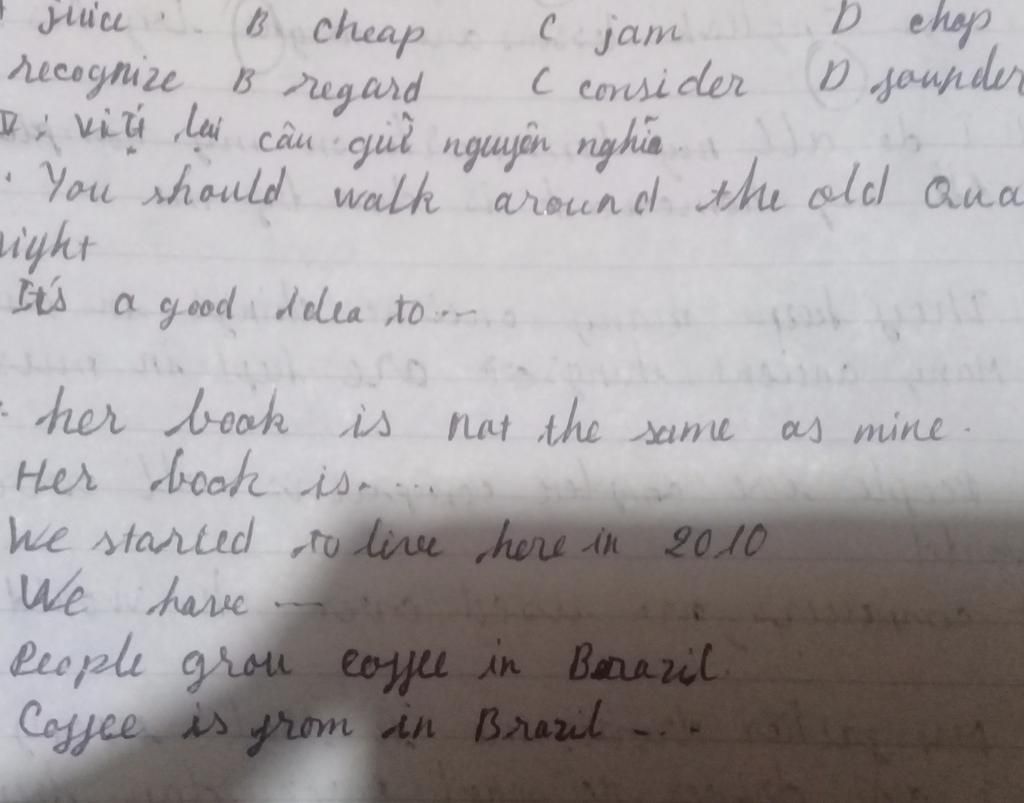 juice. B cheap C jam D chop
recognize B regard C consider D sounder
V: viết lại câu giữ nguyên nghĩa.
You should walk around the old Qua
night
It's a good idea to...
her book is not the same as mine.
Her book is.....
We started to live here in 2010
We have ....
People grow coffee in Brazil.
Coffee is from in Brazil ...